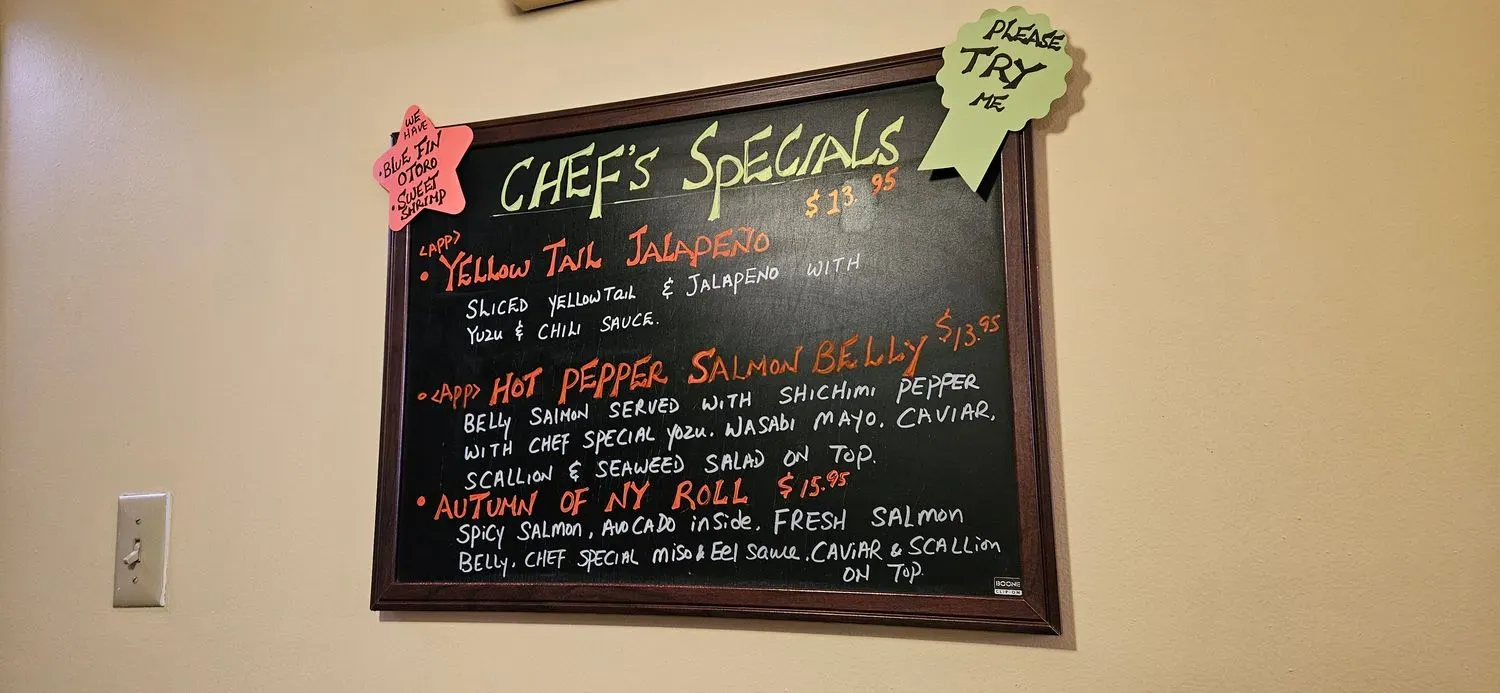 WE
HAVE
• BLUE FIN
OTORO
• SWEET
SHRIMP
PLEASE
TRY
ME
CHEF'S SPECIALS
$13.95
<APP>
• YELLOW TAIL JALAPEÑO
SLICED YELLOWTAIL & JALAPENO WITH
YUZU & CHILI SAUCE.
• <APP> HOT PEPPER SALMON BELLY $13.95
BELLY SALMON SERVED WITH SHICHIMI PEPPER
WITH CHEF SPECIAL YOZU. WASABI MAYO. CAVIAR.
SCALLION & SEAWEED SALAD ON TOP.
• AUTUMN OF NY ROLL $15.95
SPICY SALMON, AVOCADO inside. FRESH SALMON
BELLY. CHEF SPECIAL miso & Eel sauce. CAVIAR & SCALLION
ON TOP.
BOONE
CLIP-ON